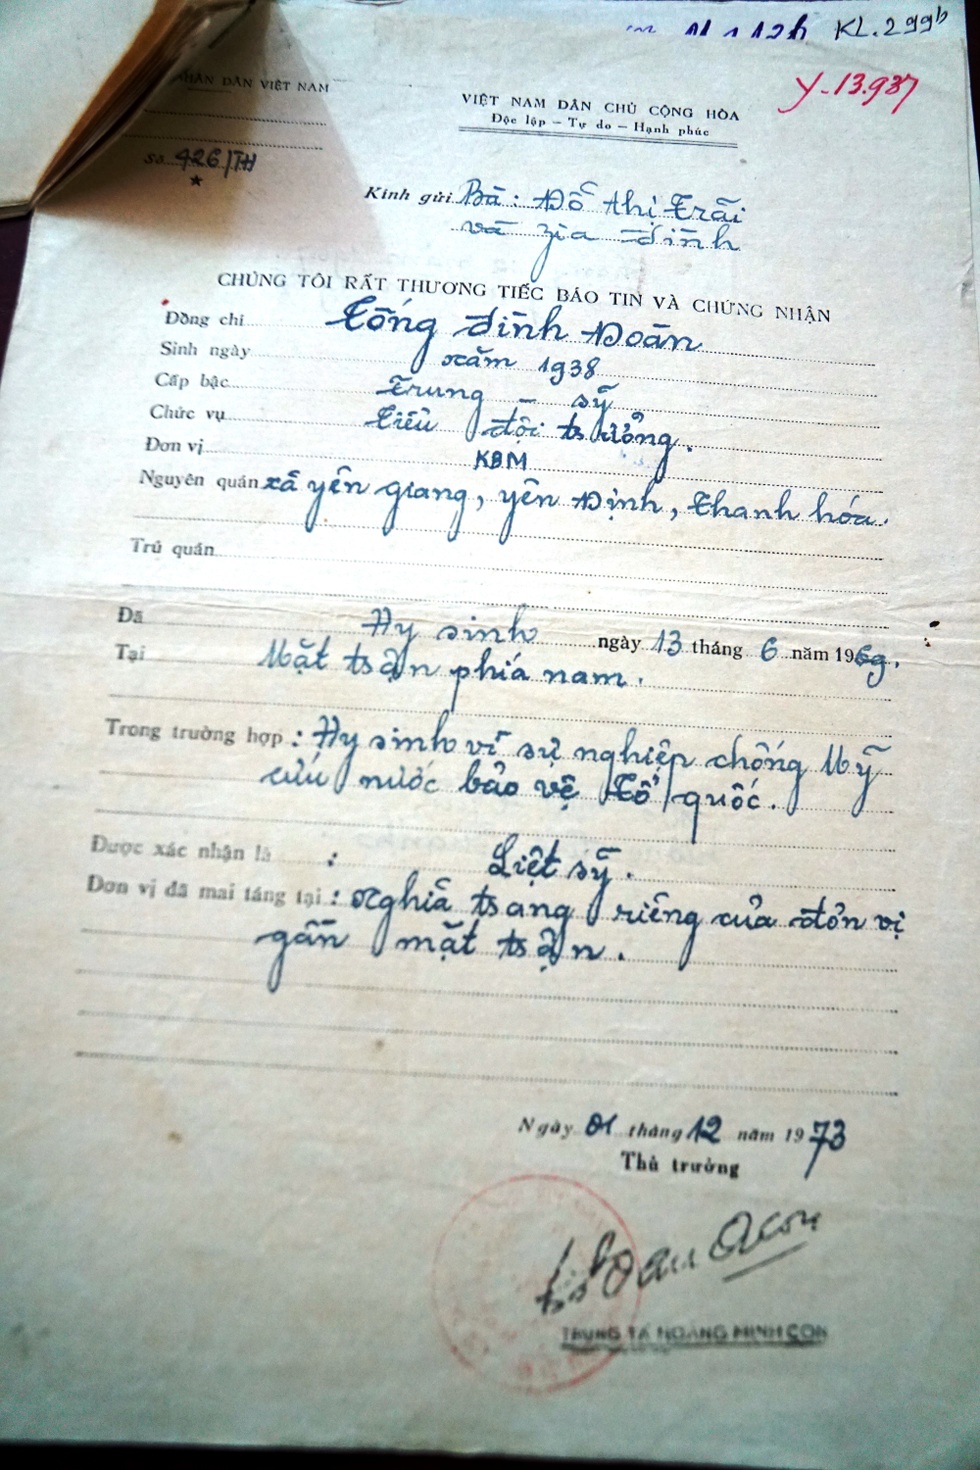 KL.299b
Y-13.937
NHÂN DÂN VIỆT NAM
VIỆT NAM DÂN CHỦ CỘNG HÒA
Độc lập — Tự do — Hạnh phúc
Số 426/TH
Kính gửi Bà: Đỗ thị Trãi
và gia đình
CHÚNG TÔI RẤT THƯƠNG TIẾC BÁO TIN VÀ CHỨNG NHẬN
Đồng chí Tống đình Đoàn
Sinh ngày năm 1938
Cấp bậc Trung - sỹ
Chức vụ Tiểu đội trưởng.
Đơn vị KBM
Nguyên quán xã yên giang, yên Định, Thanh hóa.
Trú quán
Đã Hy sinh ngày 13 tháng 6 năm 1969.
Tại Mặt trận phía nam.
Trong trường hợp : Hy sinh vì sự nghiệp chống Mỹ
cứu nước bảo vệ Tổ quốc.
Được xác nhận là : Liệt sỹ.
Đơn vị đã mai táng tại : Nghĩa trang riêng của đơn vị
gần mặt trận.
Ngày 01 tháng 12 năm 1973
Thủ trưởng
TRUNG TÁ HOÀNG MINH CON